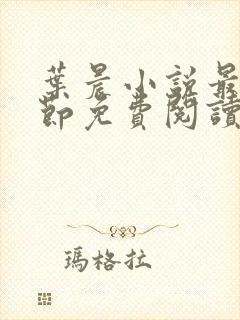 葉晨小說最
節免費閱讀
瑪格拉